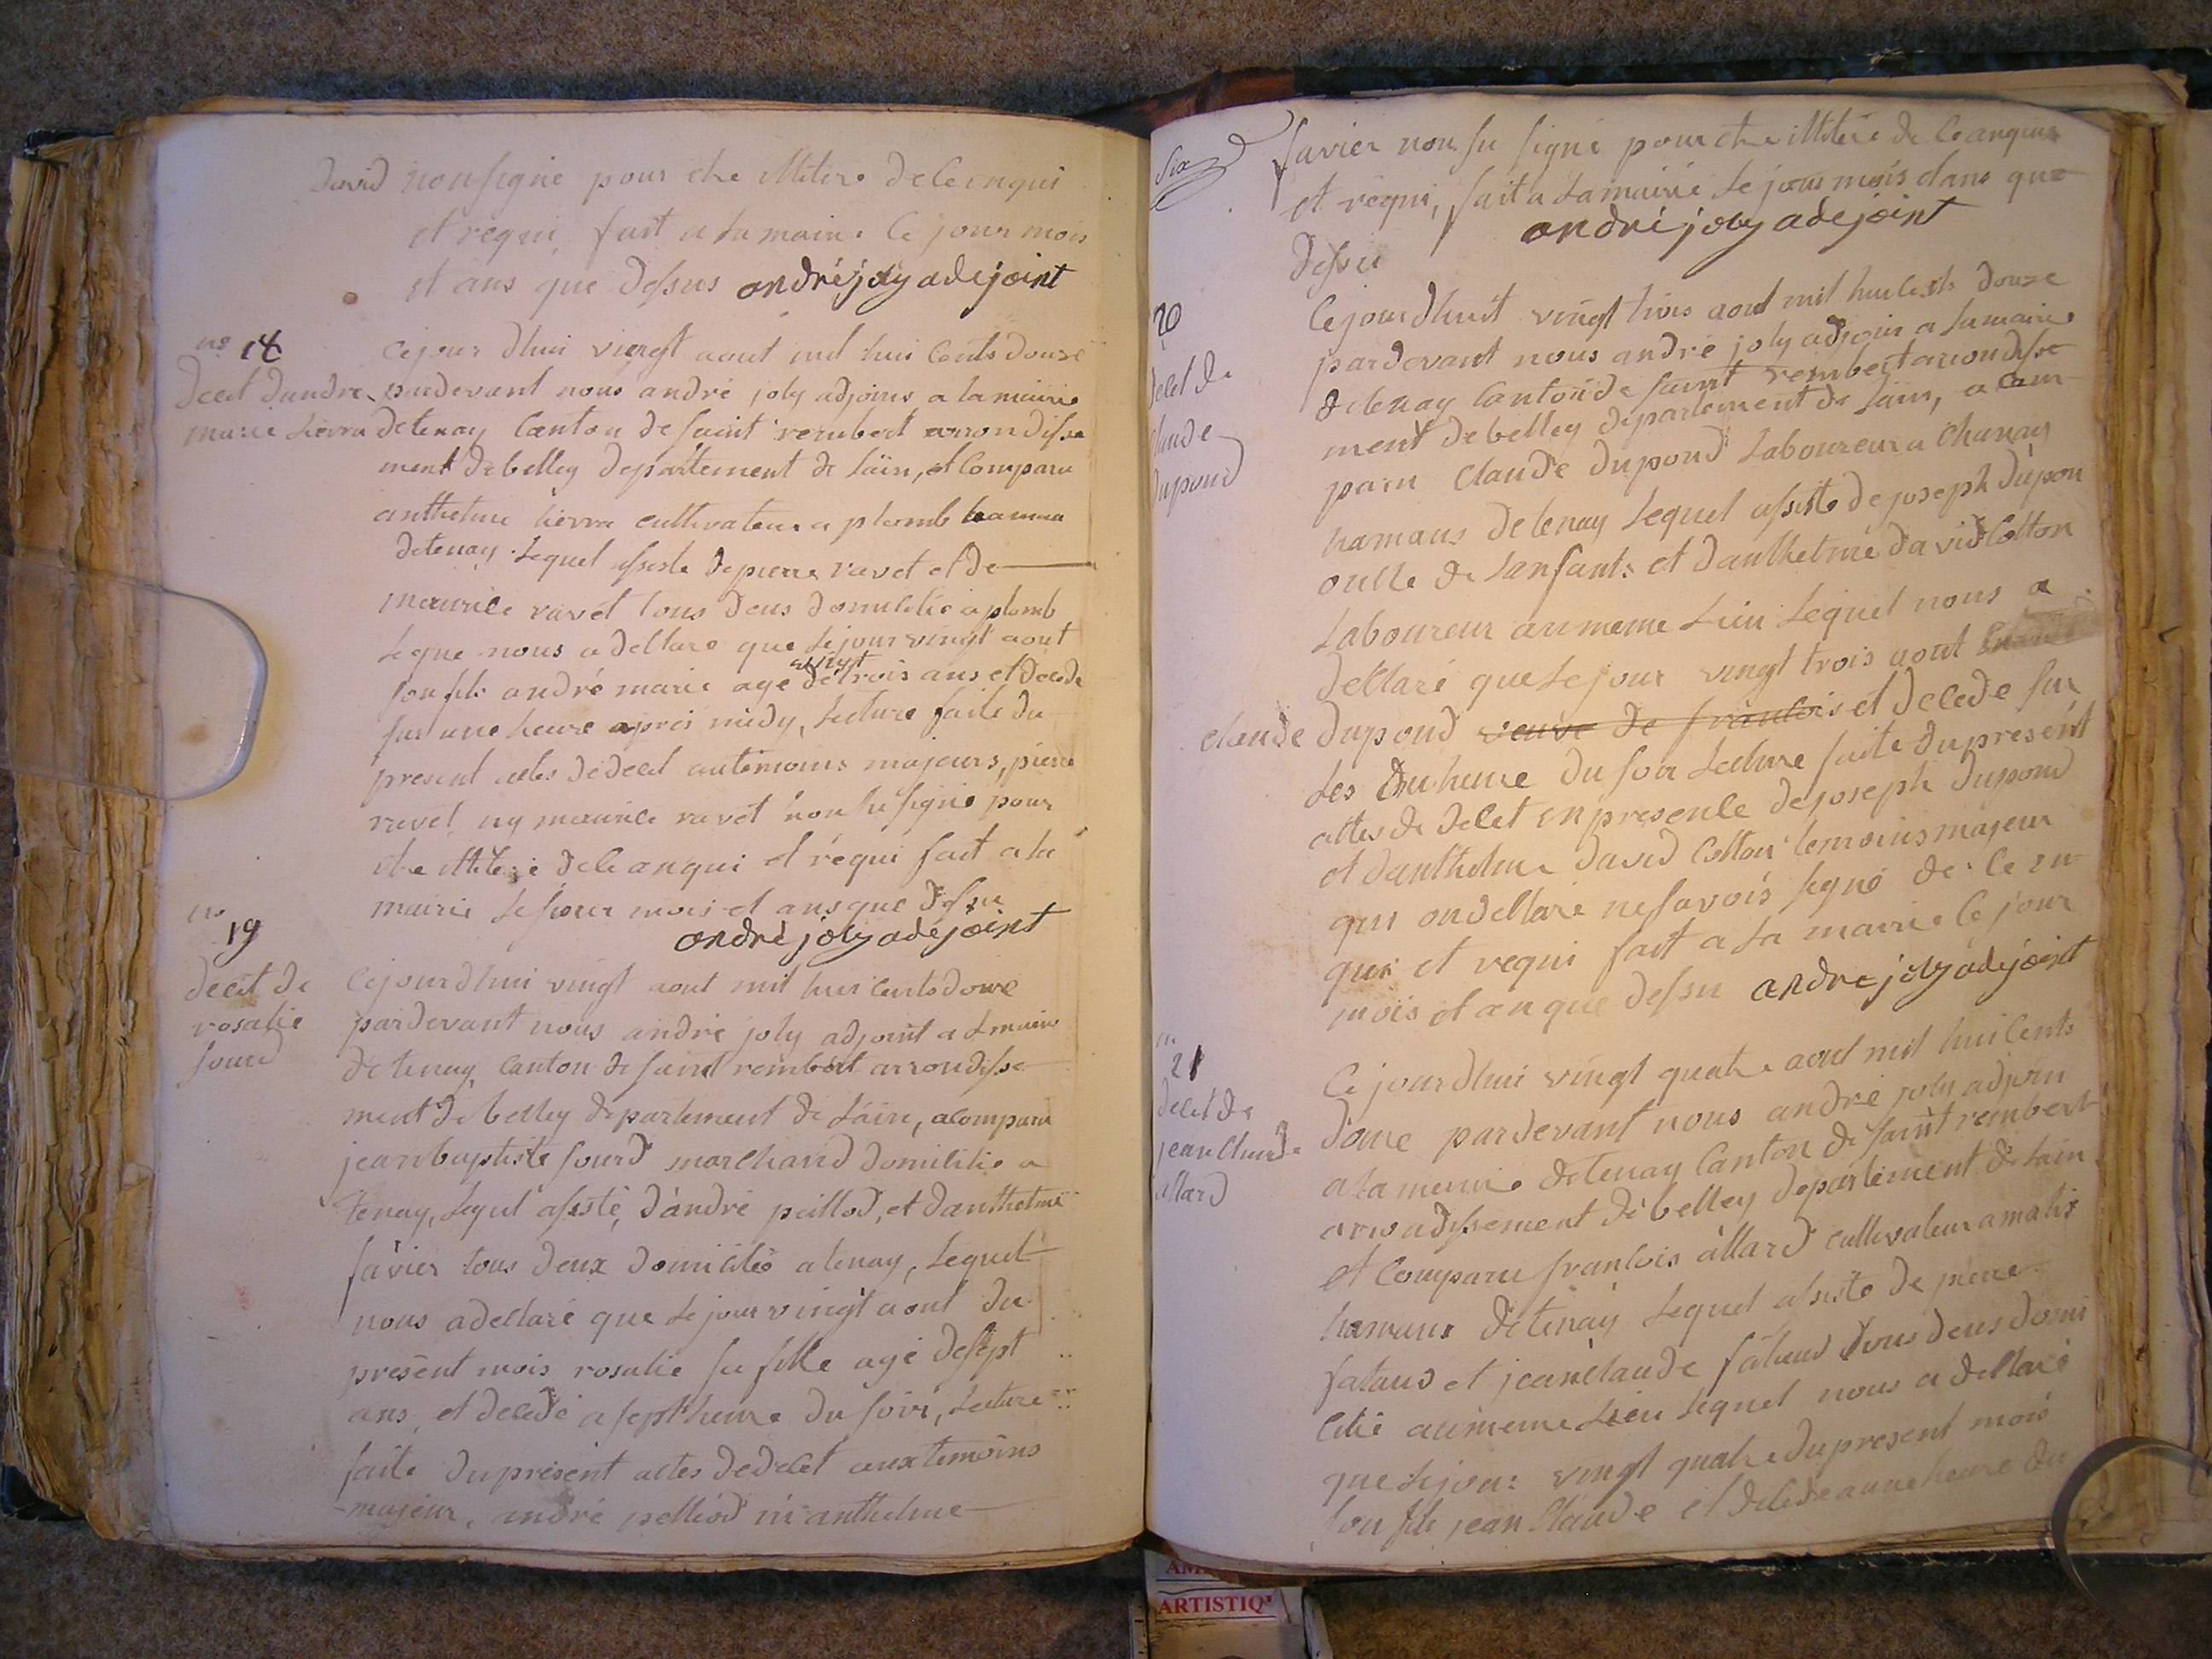 david non signe pour etre ittitere de ce enqui
et requi fait a la mairie ce jour mois
et ans que dessus andré joly adejoint
no 18
decet dandré
marie lievra
ce jour dhui vingt aout mil hui cents douze
pardevant nous andré joly adjoins a la mairie
de tenay Canton de saint rembert arrondisse
ment de belley departement de Lain, et Comparu
anthelme lievra cultivateur a plomb hamau
detenay. Lequel assiste de pierre ravet et de
maurice ravet tous deus domicilie a plomb
Leque nous a dellare que Le jour vingt aout
son fils andré marie age de vingt trois ans et decede
sur une heure apres midy, Lecture faite du
present actes de decet autemoins majeurs, pierre
ravet ny maurice ravet non su signe pour
etre ittitere de ce anqui et requi fait a la
mairie Le jour mois et ans que dessu
andré joly adéjoint
no
19
decet de
rosalie
sourd
Ce jour dhui vingt aout mil hui cents douze
pardevant nous andré joly adjoint a Lmairie
de tenay Canton de saint rembert arrondisse
ment de belley departement de Lain, acomparu
jeanbaptiste sourd marchand domicilie a
Tenay, Lequel assisté, dandré peillod, et danthelme
savier tous deux domicilés a tenay, Lequel
nous a dellaré que Le jour vingt aout du
present mois rosalie sa fille agé de sept
ans, et decedé a sept heure du soir, Lecture
faite du present actes dedecet aux temoins
majeur, andré pelliod ni anthelme
Six
savier non su signé pour etre ittitere de ce anqui
et requi, fait a La mairie Le jour mois et ans que
dessu andré joly adejoint
20
decet de
claude
dupond
Ce jour dhuit vingt trois aout mil hui cents douze
pardevant nous andré joly adjoin a La mairie
de tenay Canton de saint rembert arrondisse
ment de belley departement de Lain, a com
paru Claude dupond Laboureur a Chanay
hamaus de tenay Lequel assiste de joseph dupon
oulle de Lansant: et danthelme david Cotton
Laboureur au meme Lieu Lequel nous a
dellaré que Le jour vingt trois aout
claude dupond veuve de francois et decede sur
Les heure du soir Lecture faite du présent
attes de decet en presence de joseph dupond
et danthelme david Cotton temoins majeur
qui on dellaré ne savois signé de ce en
qui et requi fait a La mairie Ce jour
mois et an que dessu andre joly adejoint
no
21
decet de
jean Claude
allard
Ce jour dhui vingt quatre aout mil hui cents
douze pardevant nous andré joly adjoin
a La mairie de tenay Canton de saint rembert
arrondissement de belley departement de Lain
et Comparu francois allard cultivateur a malix
hamaux de tenay Lequel assiste de pierre
fataud et jean claude fataud tous deus domi
cilié au meme Lieu Lequel nous a dellaré
que Le jour vingt quatre du present mois
son fils jean Claude et decede a une heure du
AM
ARTISTIQ